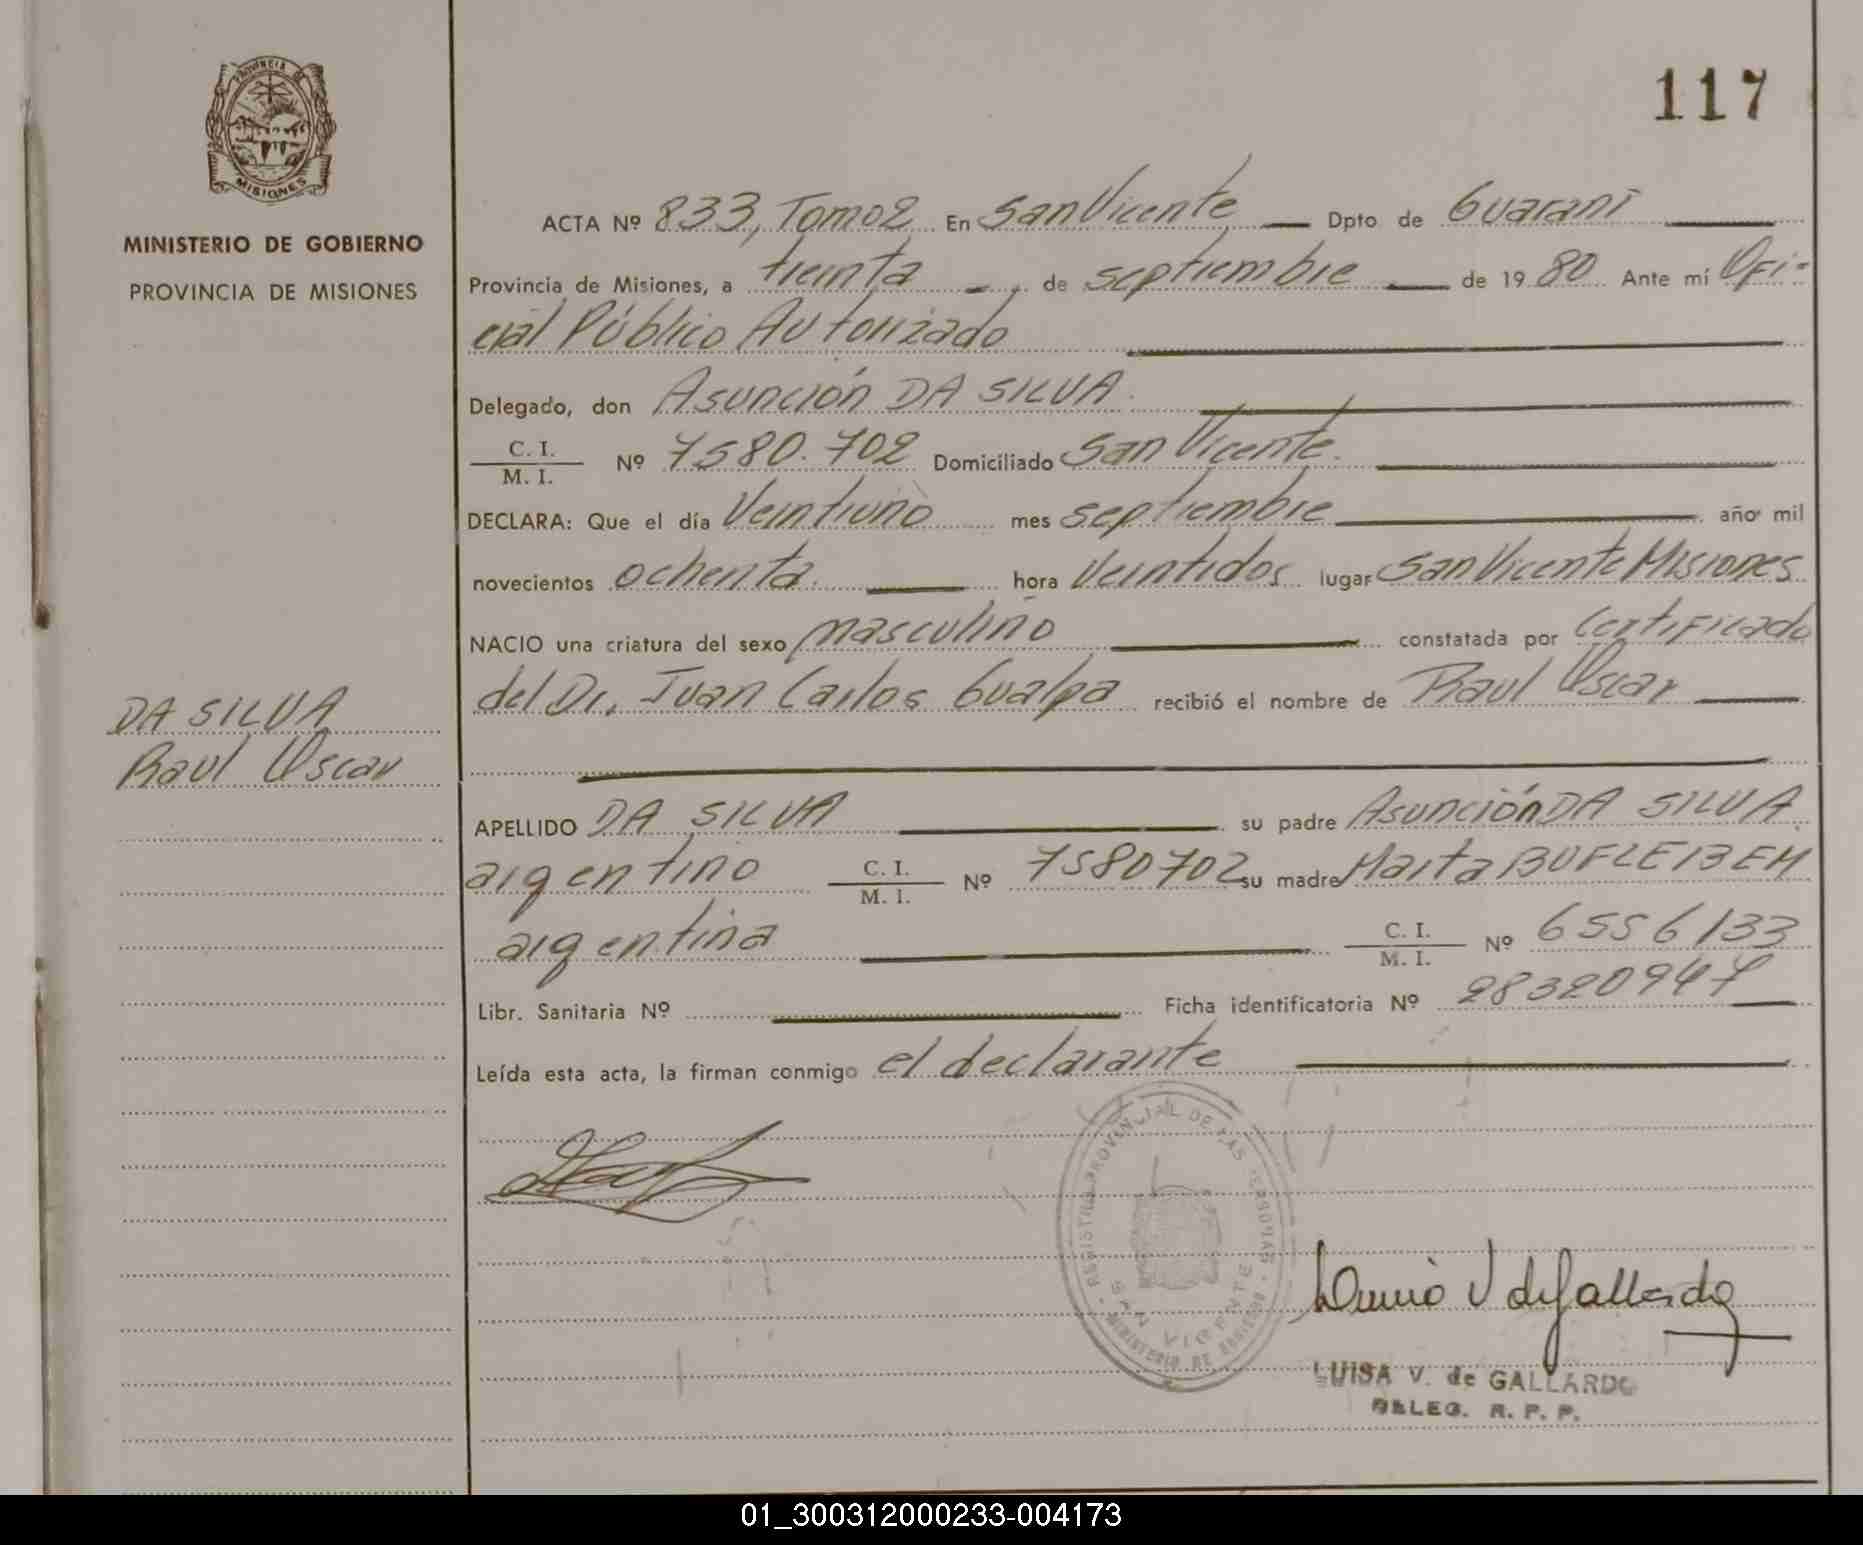 PROVINCIA DE
MISIONES
MINISTERIO DE GOBIERNO
PROVINCIA DE MISIONES
DA SILVA
Raul Oscar
117
ACTA Nº 833, Tomo 2 En San Vicente Dpto de Guarani
Provincia de Misiones, a treinta de septiembre de 1980 Ante mí Ofi-
cial Público Autorizado
Delegado, don Asunción DA SILVA
C. I.
M. I. Nº 7580.702 Domiciliado San Vicente.
DECLARA: Que el día Veintiuno mes septiembre año mil
novecientos ochenta hora Veintidos lugar San Vicente Misiones
NACIO una criatura del sexo masculino constatada por Certificado
del Dr. Juan Carlos Gualpa recibió el nombre de Raul Oscar
APELLIDO DA SILVA su padre Asunción DA SILVA
argentino C. I.
M. I. Nº 7580702 su madre Marta BUFLEIBEM
argentina C. I.
M. I. Nº 6556133
Libr. Sanitaria Nº Ficha identificatoria Nº 28320947
Leída esta acta, la firman conmigo el declarante
REGISTRO PROVINCIAL DE LAS PERSONAS
SAN VICENTE
MINISTERIO DE GOBIERNO
V de Gallardo
LUISA V. de GALLARDO
DELEG. R. P. P.
01_300312000233-004173